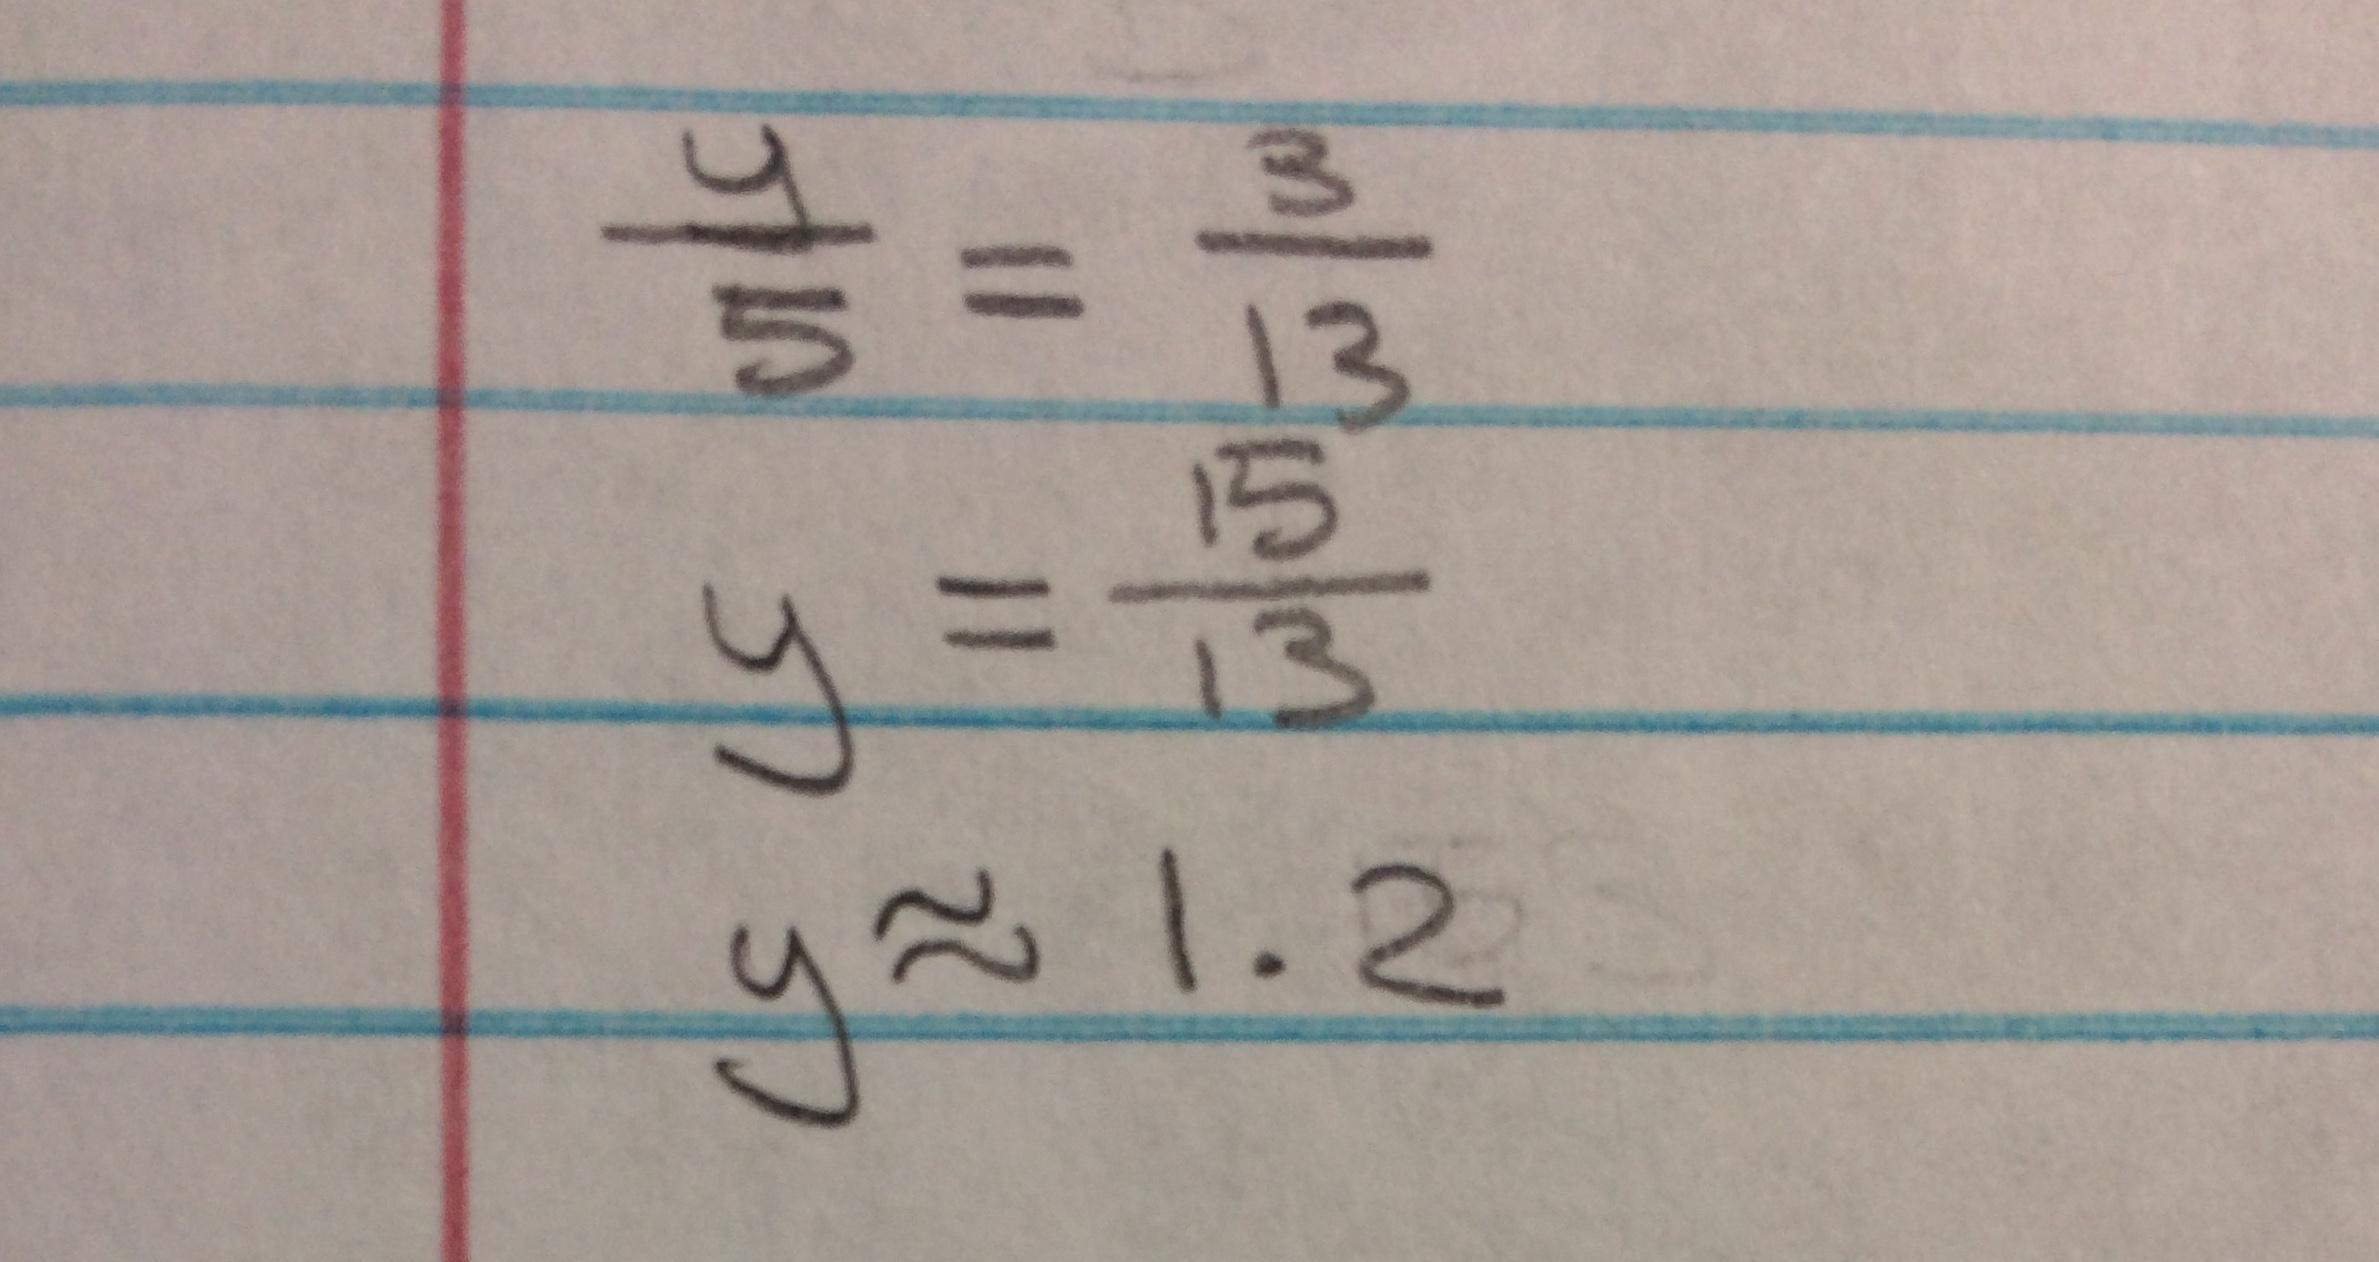 y/5 = 3/13
y = 15/13
y ≈ 1.2